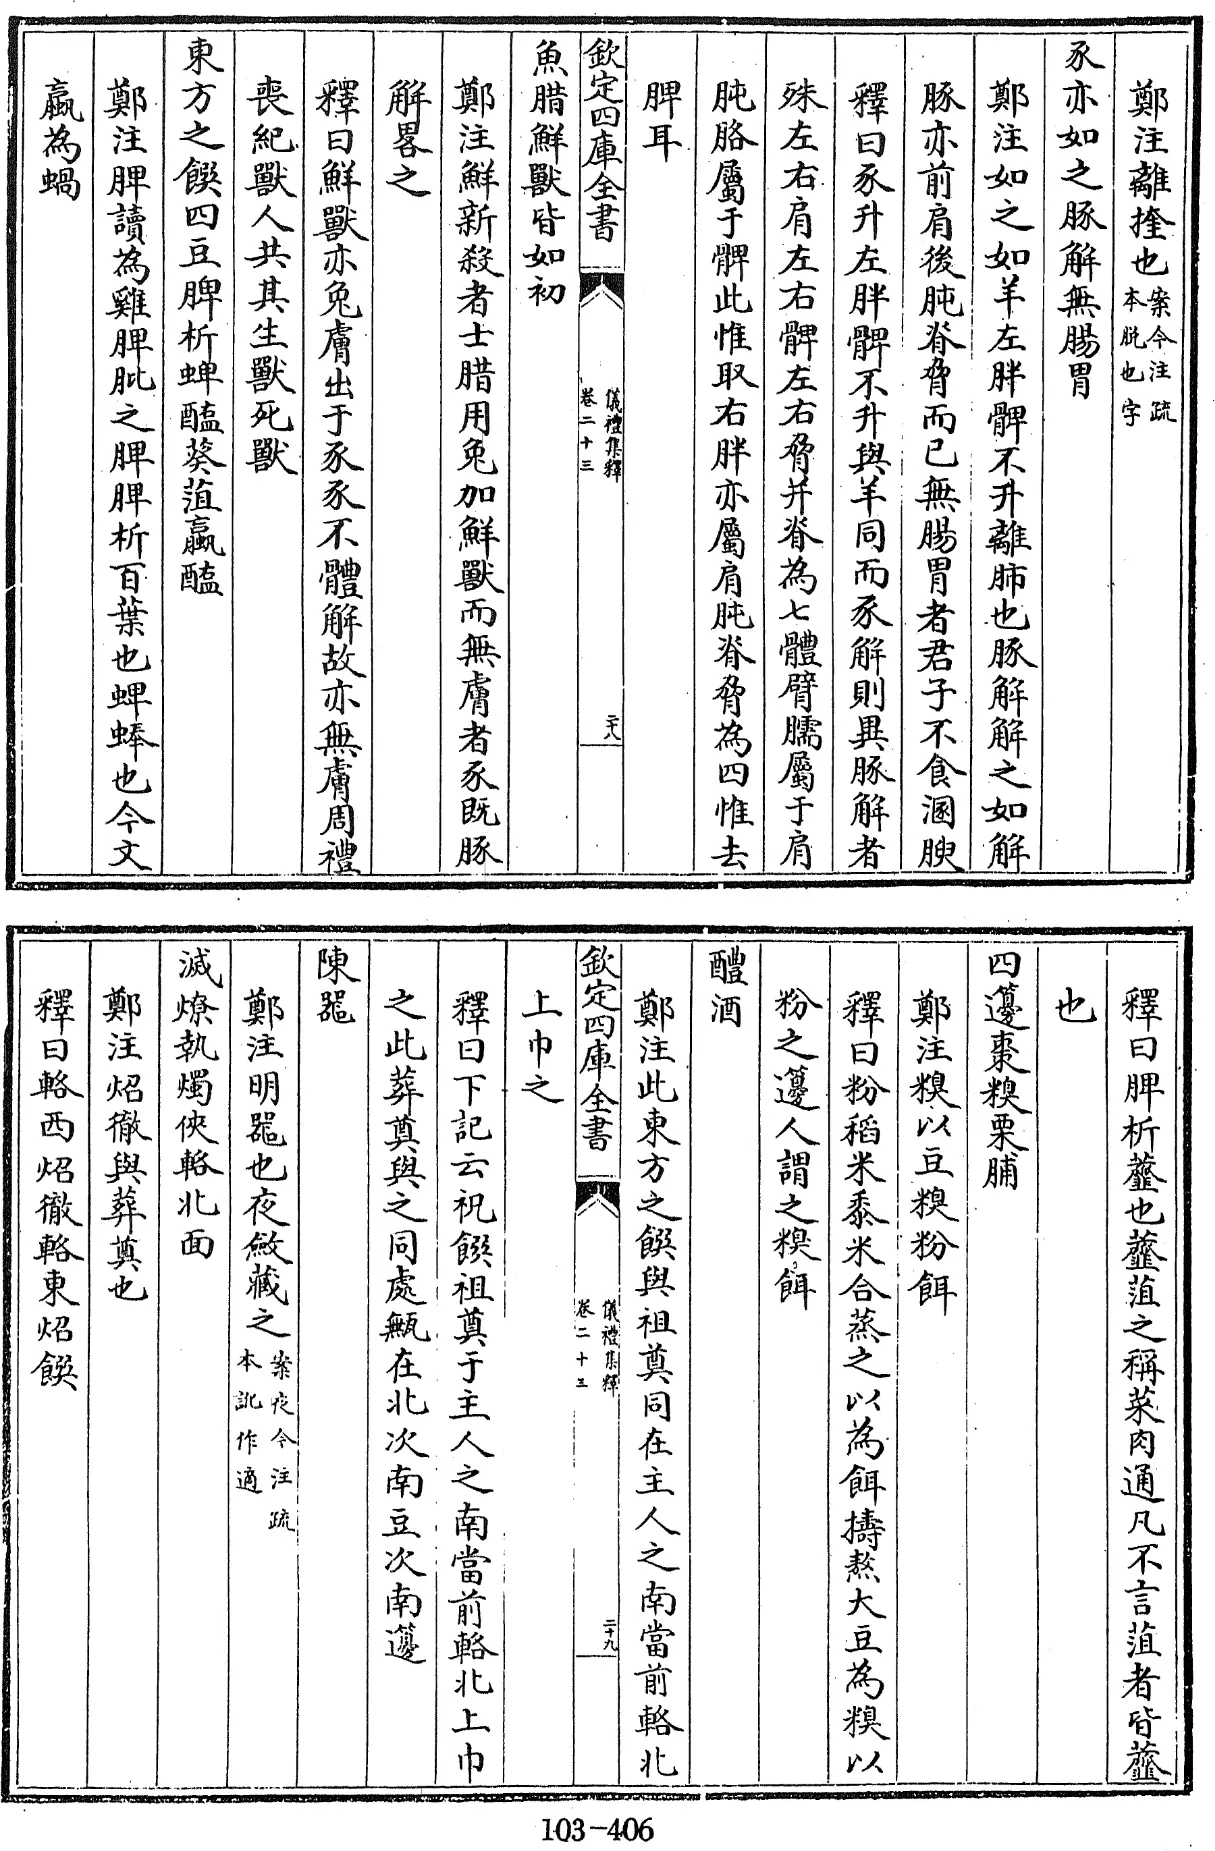 鄭注離挳也案今注疏本脱也字
豕亦如之豚解無腸胃
鄭注如之如羊左胖髀不升離肺也豚解解之如解
豚亦前肩後肫脊脅而已無腸胃者君子不食溷腴
釋曰豕升左胖髀不升與羊同而豕解則異豚解者
殊左右肩左右髀左右脅并脊為七體臂臑屬于肩
肫胳屬于髀此惟取右胖亦屬肩肫脊脅為四惟去
髀耳
欽定四庫全書
儀禮集釋
卷二十三
二十八
魚腊鮮獸皆如初
鄭注鮮新殺者士腊用兔加鮮獸而無膚者豕既豚
解畧之
釋曰鮮獸亦兔膚出于豕豕不體解故亦無膚周禮
喪紀獸人共其生獸死獸
東方之饌四豆脾析蜱醢葵菹蠃醢
鄭注脾讀為雞脾肶之脾脾析百葉也蜱蜯也今文
蠃為蝸
釋曰脾析虀也虀菹之稱菜肉通凡不言菹者皆虀
也
四籩棗糗栗脯
鄭注糗以豆糗粉餌
釋曰粉稻米黍米合蒸之以為餌擣熬大豆為糗以
粉之籩人謂之糗餌
醴酒
鄭注此東方之饌與祖奠同在主人之南當前輅北
欽定四庫全書
儀禮集釋
卷二十三
二十九
上巾之
釋曰下記云祝饌祖奠于主人之南當前輅北上巾
之此葬奠與之同處甒在北次南豆次南籩
陳器
鄭注明器也夜斂藏之案夜今注疏本訛作適
滅燎執燭俠輅北面
鄭注炤徹與葬奠也
釋曰輅西炤徹輅東炤饌
103-406